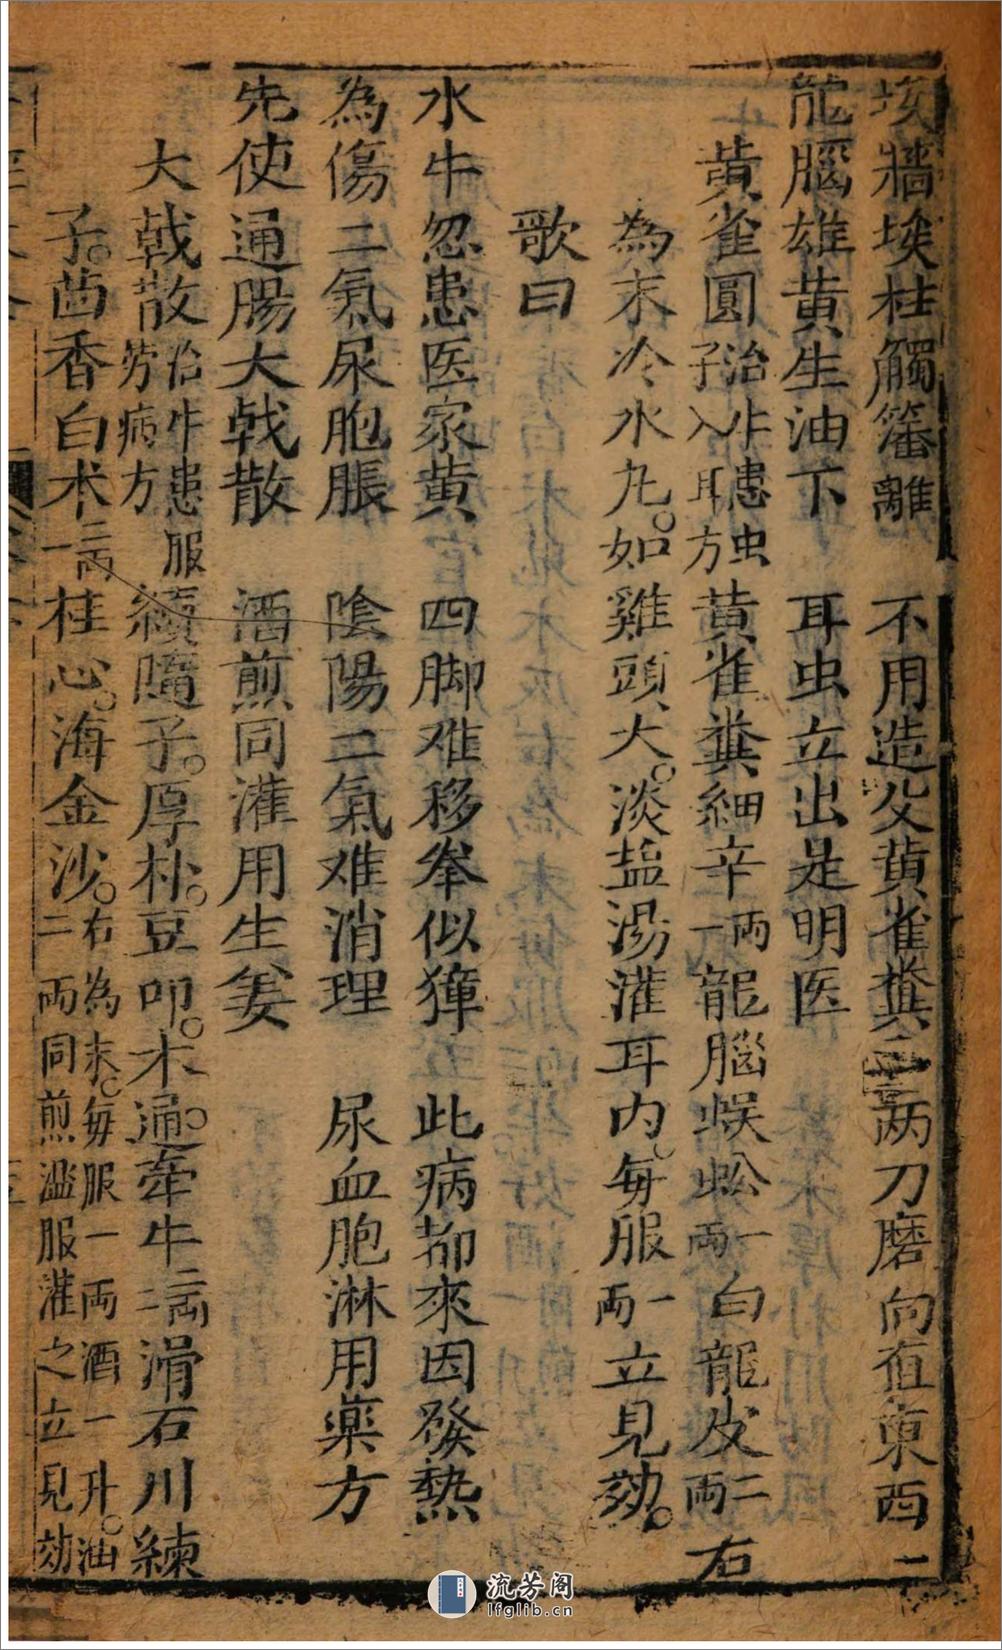 埃牆埃柱觸籓離　不用造父黃雀糞二两刀磨向在東西
龍腦雄黃生油下　耳虫立出是明医
黃雀圓治牛聴虫子入耳方黃雀糞細辛一両龍腦蜈蚣一両白龍皮二両右
為末冷水丸。如雞頭大。淡盐湯灌耳內。每服一両立見効。
歌曰
水牛忽患医家黄　四脚难移拳似獐　此病都來因發熱
為傷二氣尿胞脹　陰陽二氣难消理　尿血胞淋用藥方
先使通腸大戟散　酒煎同灌用生姜
大戟散治牛患服劳病方續隨子。厚朴。豆叩。木通。牽牛二両滑石川練
子。茴香白术二両桂心。海金沙。右為末。每服一両酒一升。油二両同煎溫服灌之立見効
流芳阁
lfglib.cn